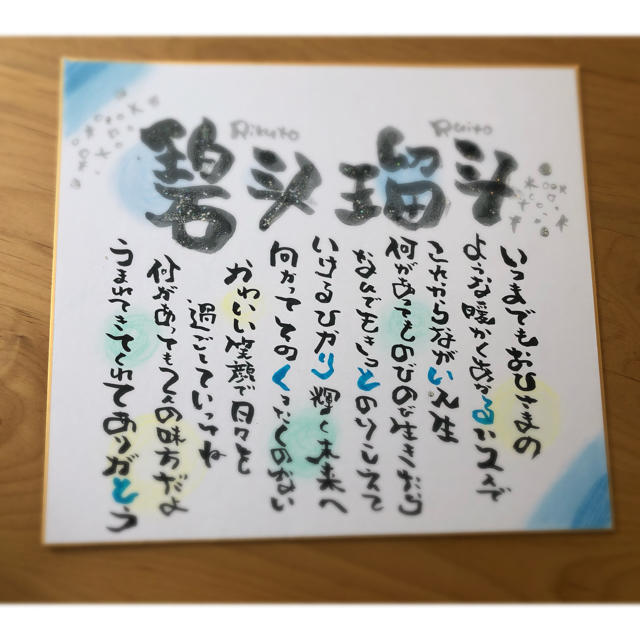 Rikuto
Ruito
碧斗 瑠斗
いつまでもおひさまの
ような暖かくあかるいえがおで
これからながい人生
何があってものびのび生きたら
なんでもきっとのりこえて
いけるひかり輝く未来へ
向かってそのくったくのない
かわいい笑顔で日々を
過ごしていってね
何があっても2人の味方だよ
うまれてきてくれてありがとう